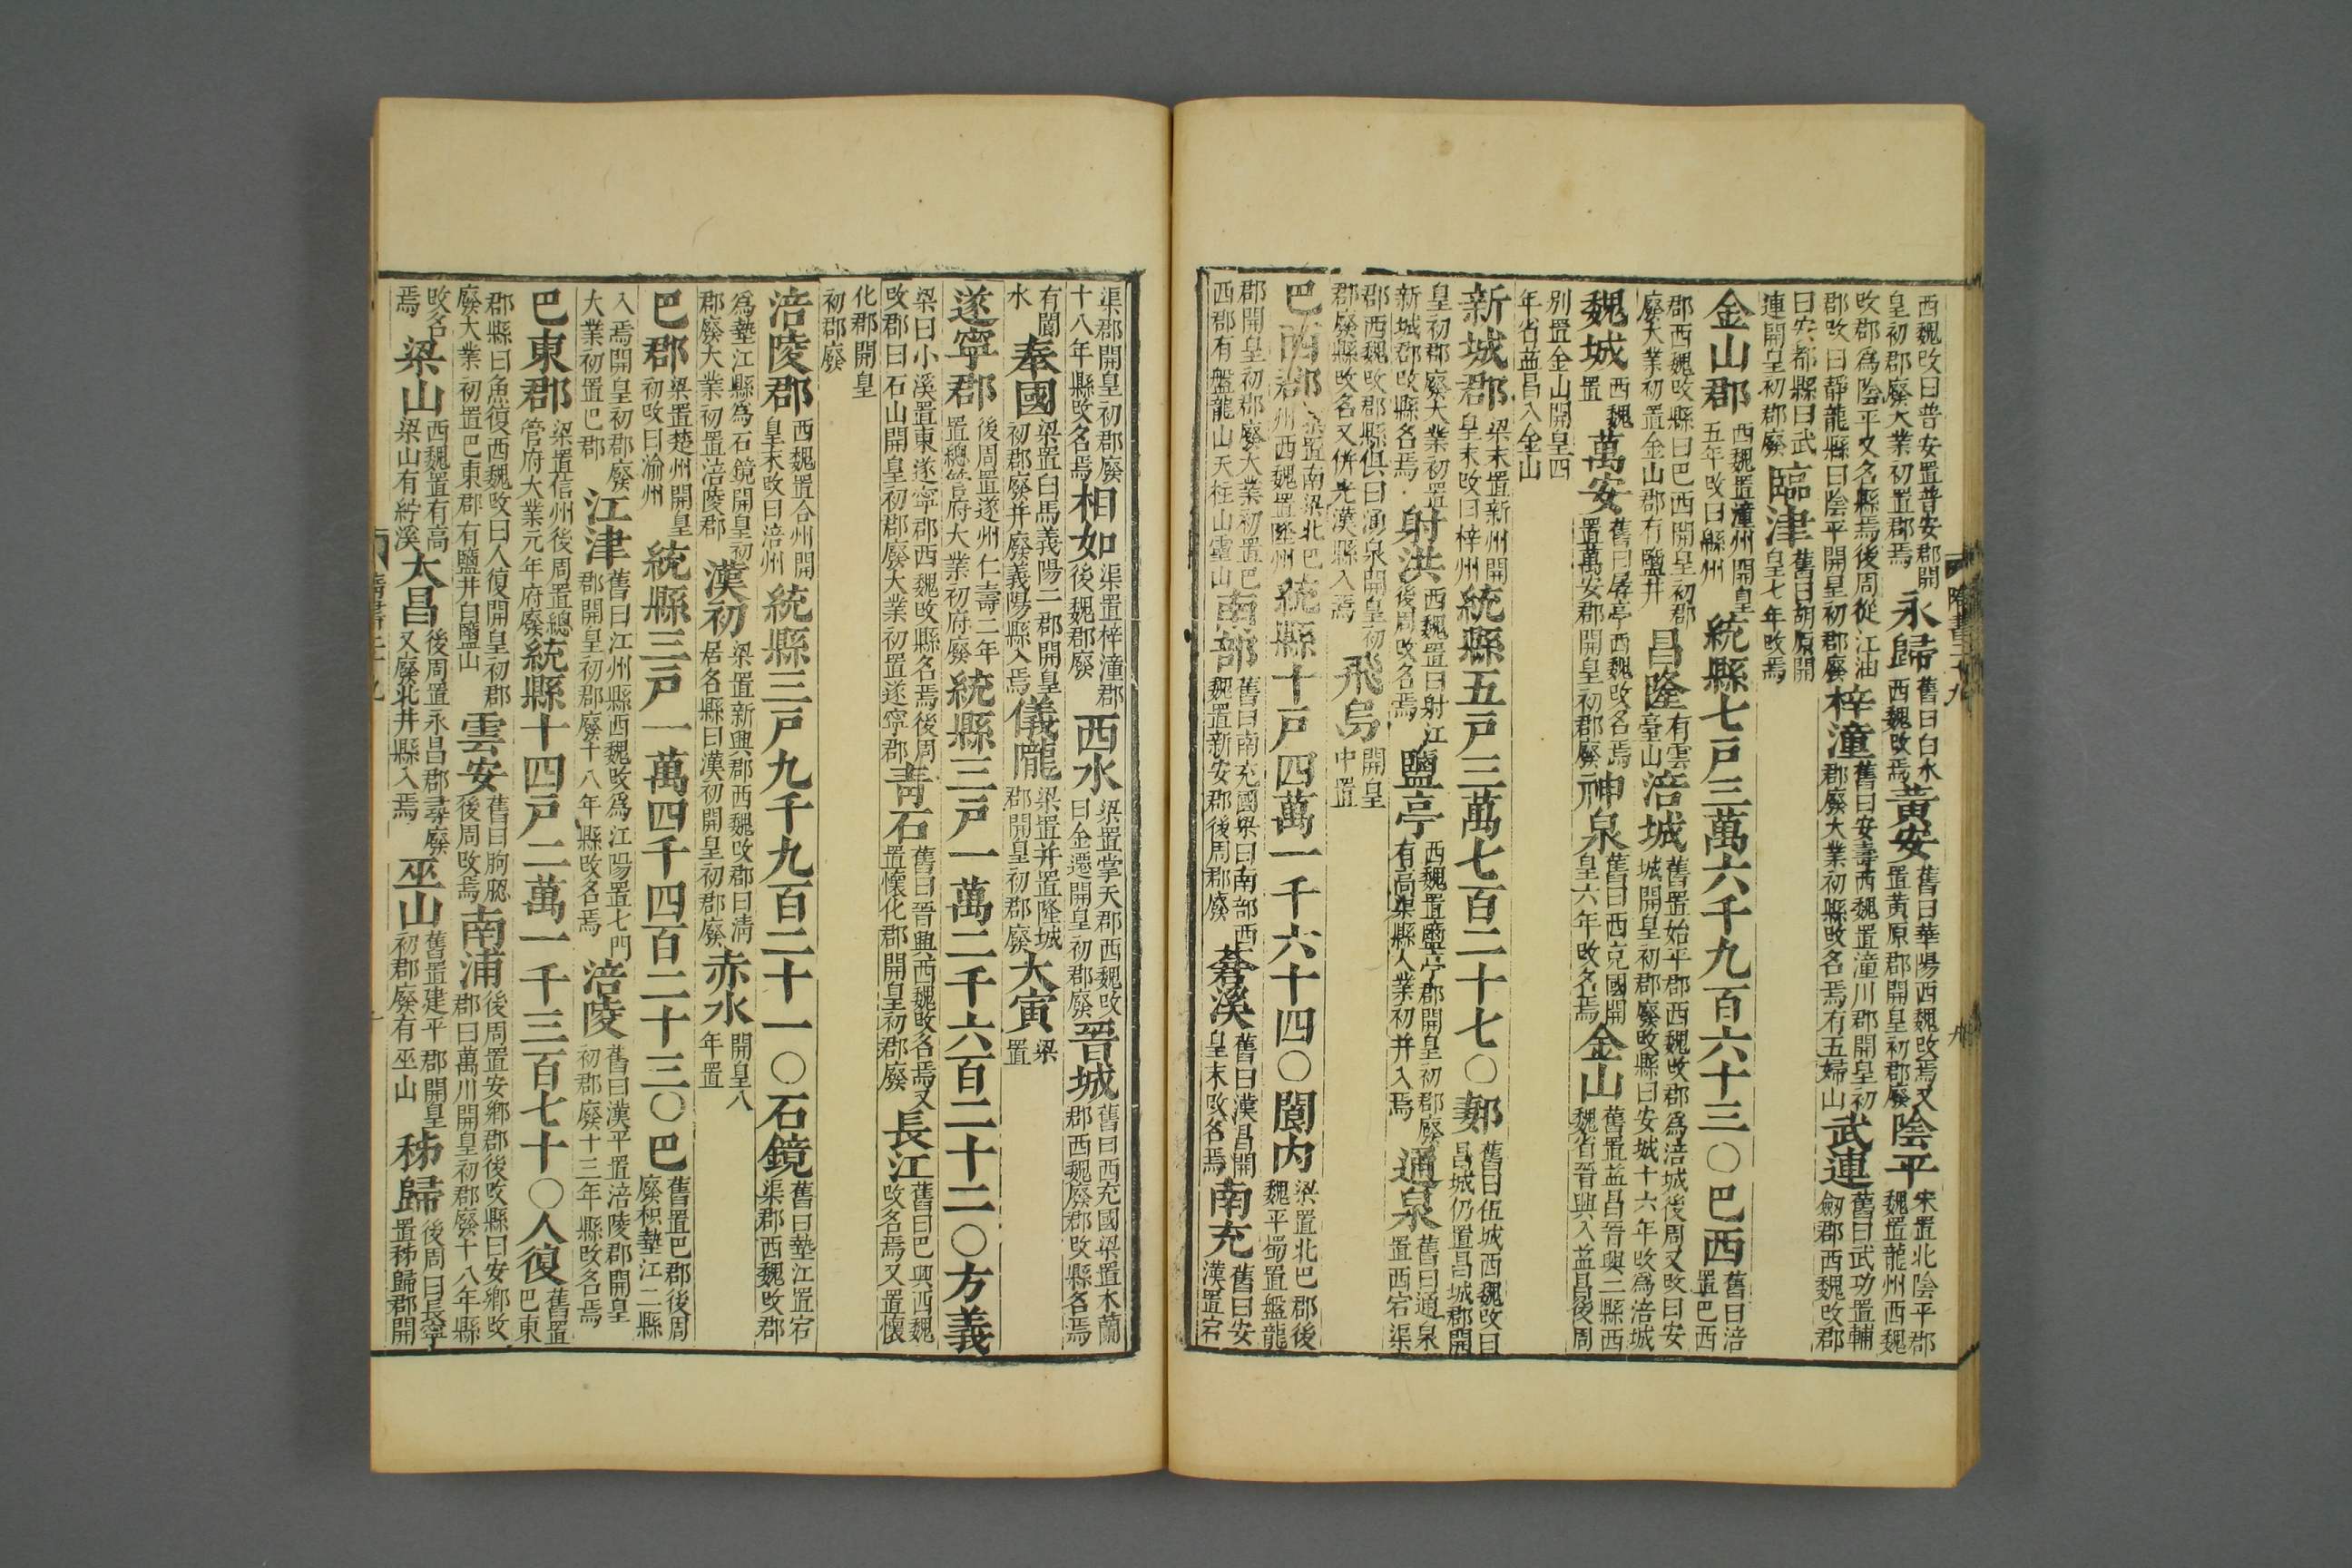 西魏改曰普安置普安郡開皇初郡廢大業初置郡焉永歸舊曰白水西魏改焉黃安舊曰華陽西魏改焉又置黃原郡開皇初郡廢陰平宋置北陰平郡魏置龍州西魏
改郡爲陰平又名縣焉後周從江油郡改曰靜龍縣曰陰平開皇初郡廢梓潼舊曰安壽西魏置潼川郡開皇初郡廢大業初縣改名焉有五婦山武連舊曰武功置輔劔郡西魏改郡
曰安都縣曰武連開皇初郡廢臨津舊曰胡原開皇七年改焉
金山郡西魏置潼州開皇五年改曰緜州統縣七戸三萬六千九百六十三〇巴西舊曰涪置巴西
郡西魏改縣曰巴西開皇初郡廢大業初置金山郡有鹽井昌隆有雲臺山涪城舊置始平郡西魏改郡爲涪城後周又改曰安城開皇初郡廢改縣曰安城十六年改爲涪城
魏城西魏置萬安舊曰孱亭西魏改名焉置萬安郡開皇初郡廢神泉舊曰西充國開皇六年改名焉金山舊置益昌晉興二縣西魏省晉興入益昌後周
別置金山開皇四年省益昌入金山
新城郡梁末置新州開皇末改曰梓州統縣五戸三萬七百二十七〇郪舊曰伍城西魏改曰昌城仍置昌城郡開
皇初郡廢大業初置新城郡改縣名焉射洪西魏置曰射江後周改名焉鹽亭西魏置鹽亭郡開皇初郡廢有高渠縣大業初并入焉通泉舊曰通泉置西宕渠
郡西魏改郡縣俱曰涌泉開皇初郡廢縣改名又併光漢縣入焉飛烏開皇中置
巴西郡梁置南梁北巴州西魏置隆州統縣十戸四萬一千六十四〇閬内梁置北巴郡後魏平蜀置盤龍
郡開皇初郡廢大業初置巴西郡有盤龍山天柱山靈山南部舊曰南充國梁曰南部西魏置新安郡後周郡廢蒼溪舊曰漢昌開皇末改名焉南充舊曰安漢置宕
渠郡開皇初郡廢十八年縣改名焉相如梁置梓潼郡後魏郡廢西水梁置掌天郡西魏改曰金遷開皇初郡廢晉城舊曰西充國梁置木蘭郡西魏廢郡改縣名焉
有閬水奉國梁置白馬義陽二郡開皇初郡廢并廢義陽縣入焉儀隴梁置并置隆城郡開皇初郡廢大寅梁置
遂寧郡後周置遂州仁壽二年置總管府大業初府廢統縣三戸一萬二千六百二十二〇方義
梁曰小溪置東遂寧郡西魏改縣名焉後周改郡曰石山開皇初郡廢大業初置遂寧郡青石舊曰晉興西魏改名焉又置懷化郡開皇初郡廢長江舊曰巴興西魏改名焉又置懷
化郡開皇初郡廢
涪陵郡西魏置合州開皇末改曰涪州統縣三戸九千九百二十一〇石鏡舊曰墊江置宕渠郡西魏改郡
爲墊江縣爲石鏡開皇初郡廢大業初置涪陵郡漢初梁置新興郡西魏改郡曰清居名縣曰漢初開皇初郡廢赤水開皇八年置
巴郡梁置楚州開皇初改曰渝州統縣三戸一萬四千四百二十三〇巴舊置巴郡後周廢枳墊江二縣
入焉開皇初郡廢大業初置巴郡江津舊曰江州縣西魏改爲江陽置七門郡開皇初郡廢十八年縣改名焉涪陵舊曰漢平置涪陵郡開皇初郡廢十三年縣改名焉
巴東郡梁置信州後周置總管府大業元年府廢統縣十四戸二萬一千三百七十〇人復舊置巴東
郡縣曰魚復西魏改曰人復開皇初郡廢大業初置巴東郡有鹽井白鹽山雲安舊曰朐䏰後周改焉南浦後周置安鄉郡後改縣曰安鄉改郡曰萬川開皇初郡廢十八年縣
改名焉梁山西魏置有高梁山有紵溪大昌後周置永昌郡尋廢又廢北井縣入焉巫山舊置建平郡開皇初郡廢有巫山秭歸後周曰長寧置秭歸郡開